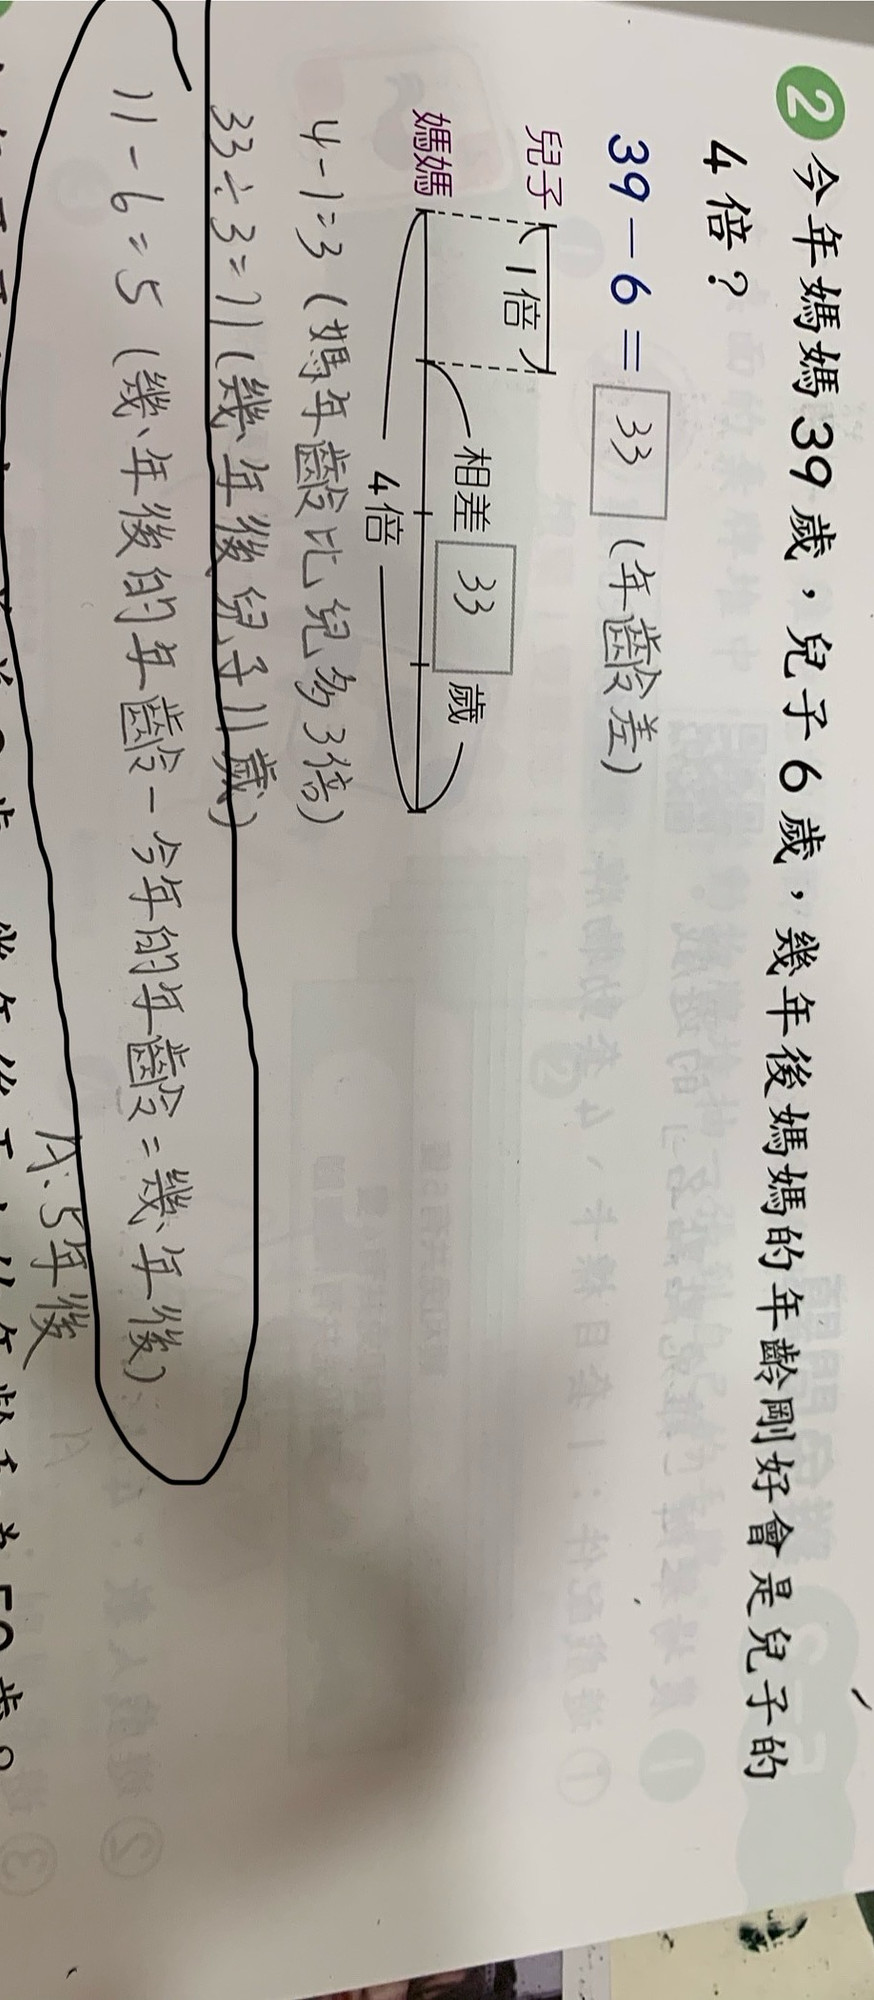 2 今年媽媽39歲，兒子6歲，幾年後媽媽的年齡剛好會是兒子的
4倍？
39－6＝33（年齡差）
兒子 1倍
相差33歲
媽媽
4倍
4-1=3（媽年齡比兒多3倍）
33÷3=11（幾年後兒子11歲）
11-6=5（幾年後的年齡-今年的年齡=幾年後）
A:5年後